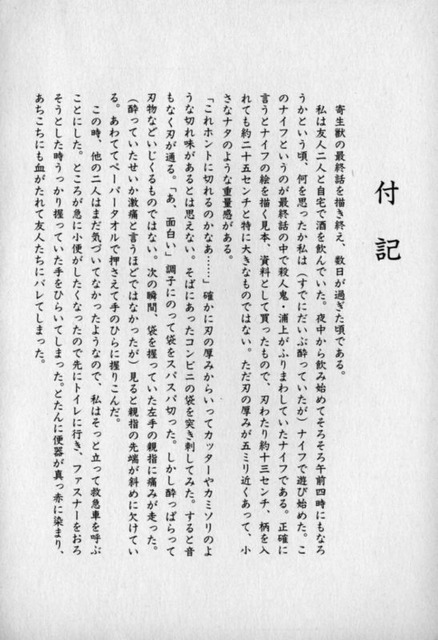 付記
寄生獣の最終話を描き終え、数日が過ぎた頃である。
私は友人二人と自宅で酒を飲んでいた。夜中から飲み始めてそろそろ午前四時にもなろ
うかという頃、何を思ったか私は(すでにだいぶ酔っていたが)ナイフで遊び始めた。こ
のナイフというのが最終話の中で殺人鬼・浦上がふりまわしていたナイフである。正確に
言うとナイフの絵を描く見本、資料として買ったもので、刃わたり約十三センチ、柄を入
れても約二十五センチと特に大きなものではない。ただ刃の厚みが五ミリ近くあって、小
さなナタのような重量感がある。
「これホントに切れるのかなあ……」確かに刃の厚みからいってカッターやカミソリのよ
うな切れ味があるとは思えない。そばにあったコンビニの袋を突き刺してみた。すると音
もなく刃が通る。「あ、面白い」調子にのって袋をスパスパ切った。しかし酔っぱらって
刃物などいじくるものではない。次の瞬間、袋を握っていた左手の親指に痛みが走った。
(酔っていたせいか激痛と言うほどではなかったが)見ると親指の先端が斜めに欠けてい
る。あわててペーパータオルで押さえて手のひらに握りこんだ。
この時、他の二人はまだ気づいてなかったようなので、私はそっと立って救急車を呼ぶ
ことにした。ところが急に小便がしたくなったので先にトイレに行き、ファスナーをおろ
そうとした時うっかり握っていた手をひらいてしまった。とたんに便器が真っ赤に染まり、
あちこちにも血がたれて友人たちにバレてしまった。